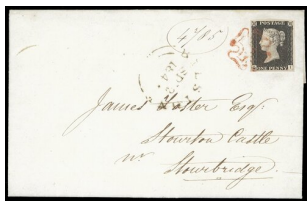 4/85
POSTAGE
ONE PENNY
James Foster Esq:
Stourton Castle
nr Stourbridge.